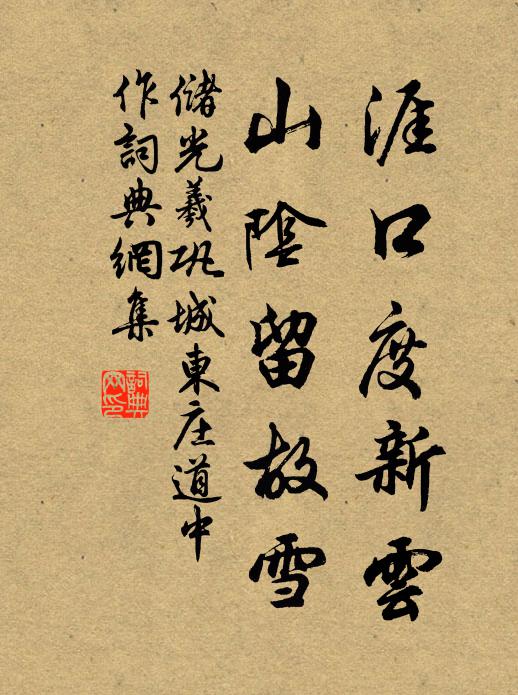 涯口度新雲
山陰留故雪
儲光羲巩城東庄道中
作詞典網集
詞典
網印